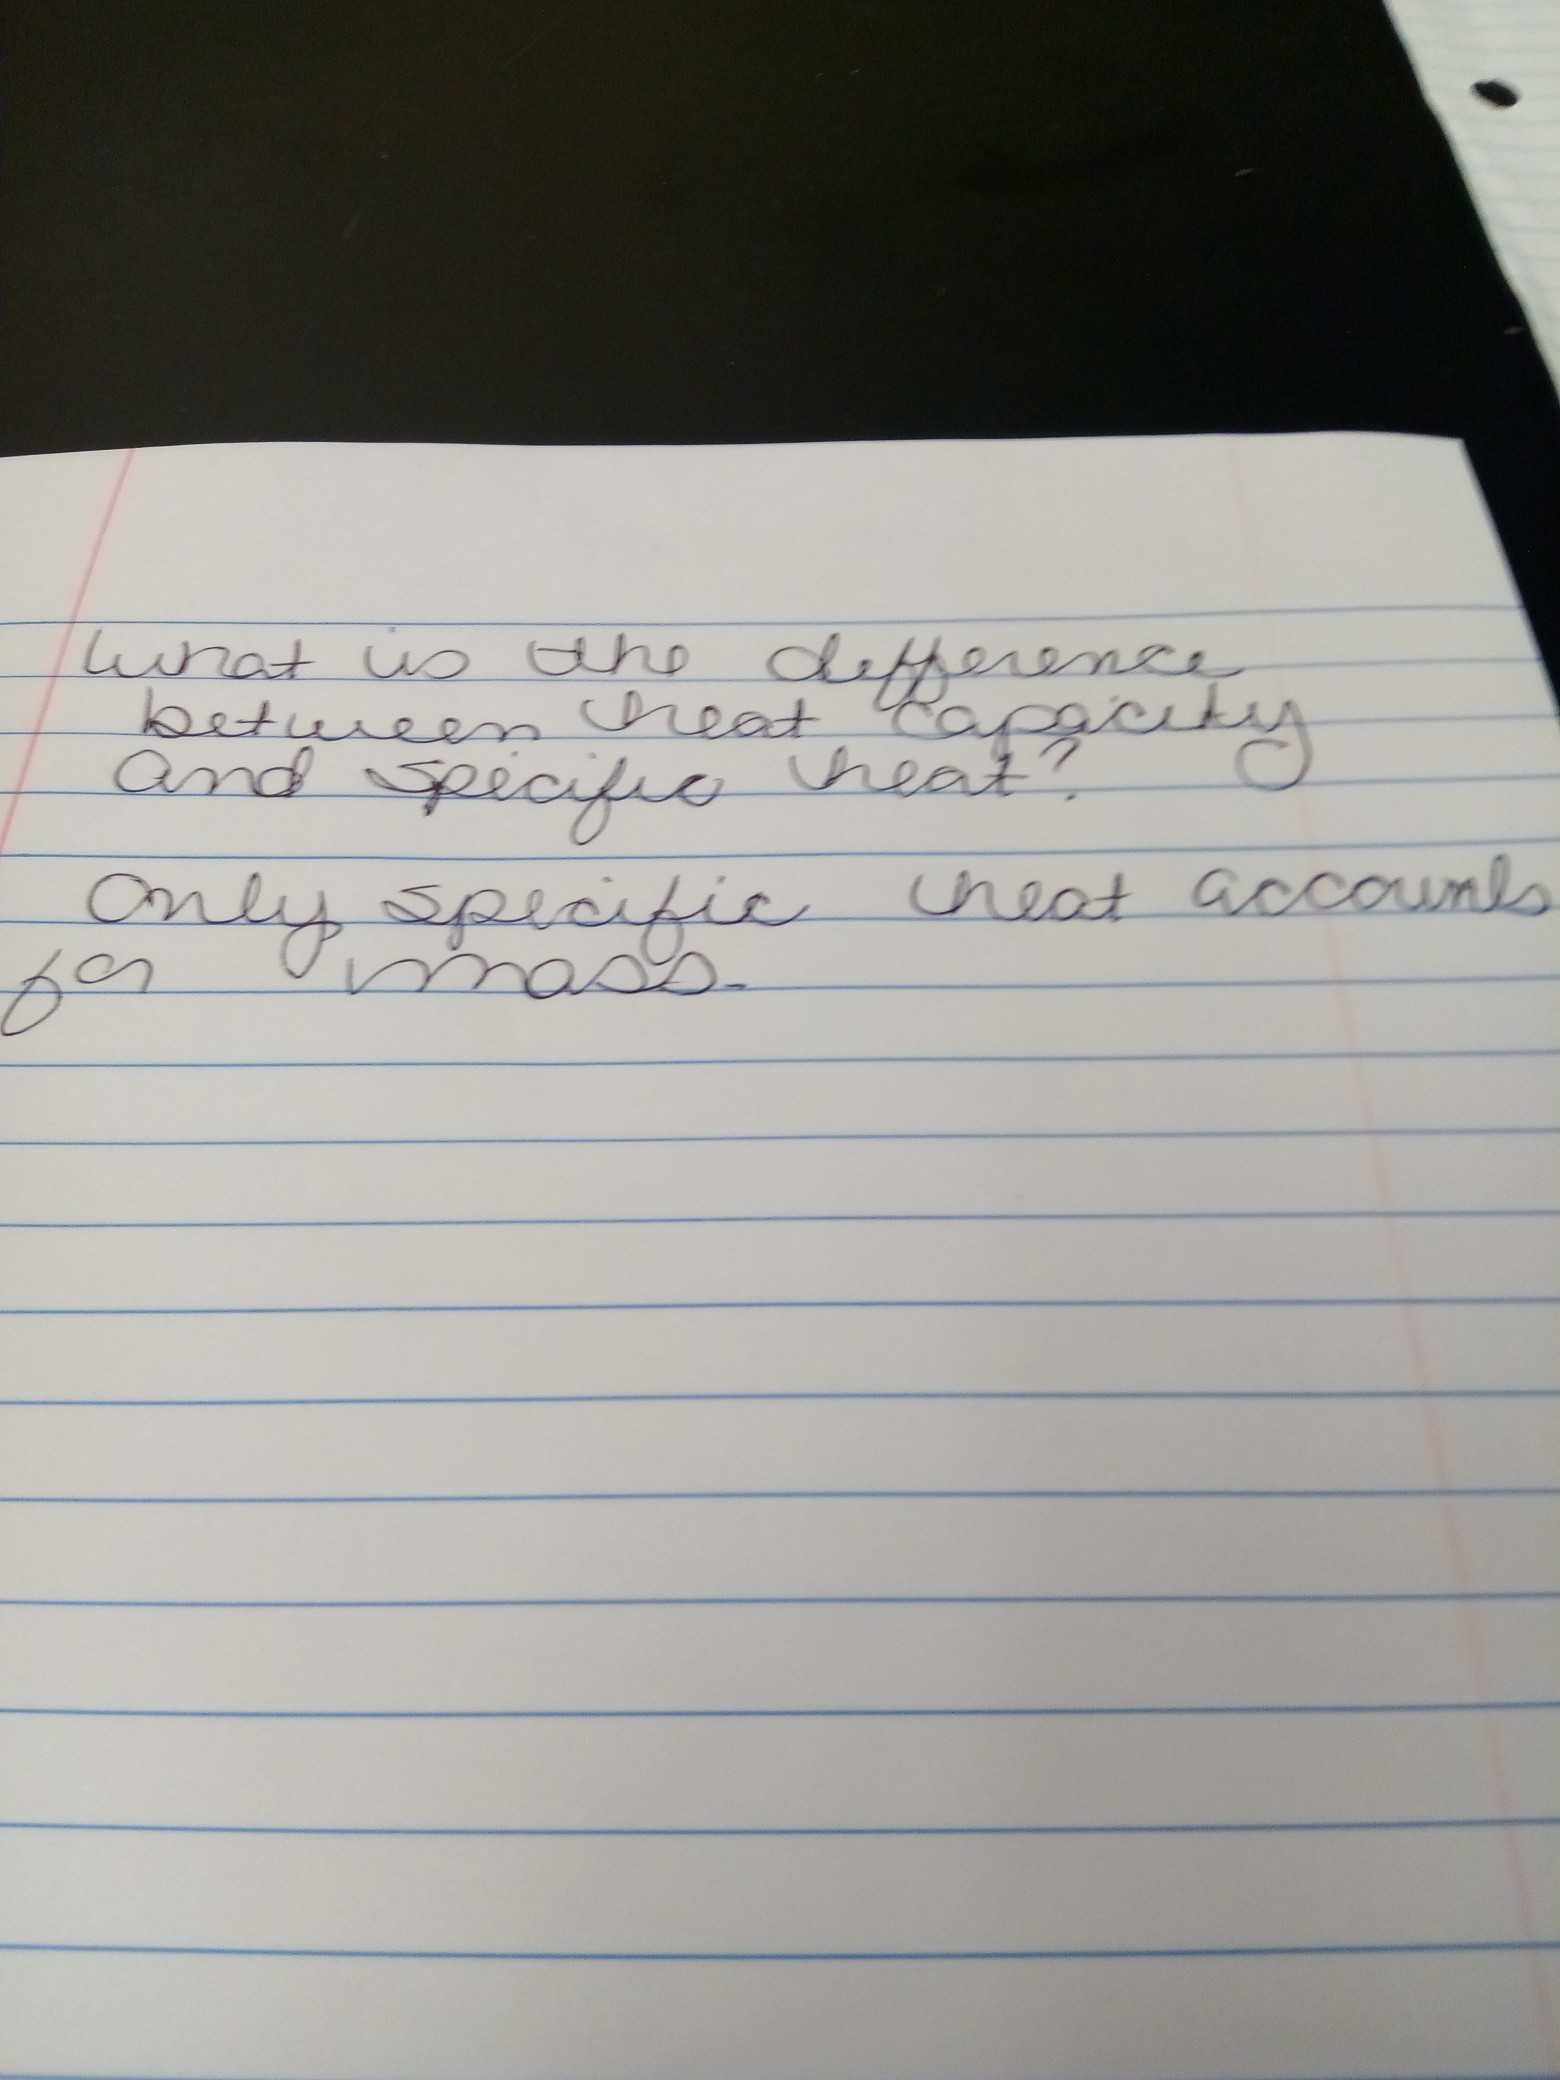 What is the difference
between heat capacity
and specific heat?
Only specific heat accounts
for mass.